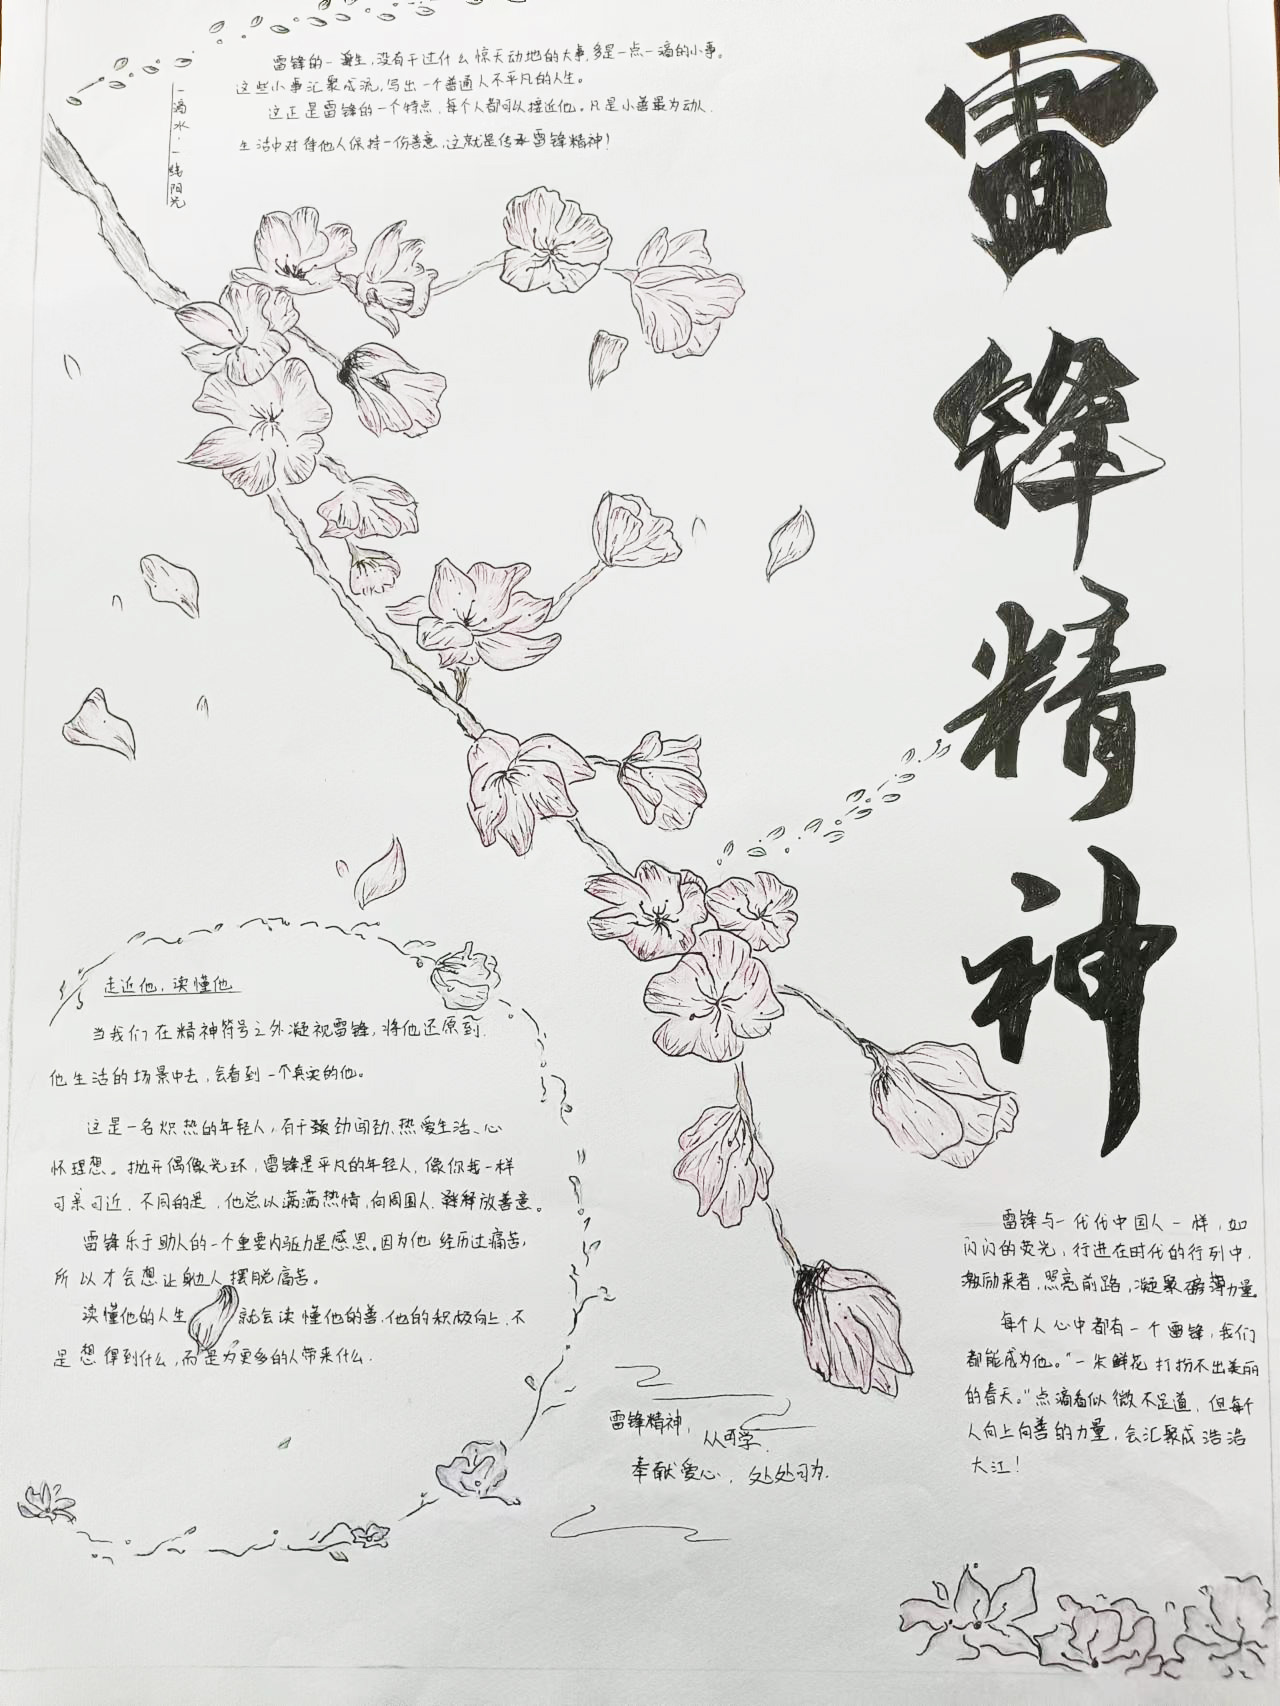 雷锋精神
一滴水·一缕阳光
雷锋的一生,没有干过什么惊天动地的大事,多是一点一滴的小事。
这些小事汇聚成流,写出一个普通人不平凡的人生。
这正是雷锋的一个特点,每个人都可以接近他。凡是小善最为动人,
生活中对待他人保持一份善意,这就是传承雷锋精神!
走近他,读懂他
当我们在精神符号之外凝视雷锋,将他还原到
他生活的场景中去,会看到一个真实的他。
这是一名炽热的年轻人,有干劲闯劲、热爱生活、心
怀理想。抛开偶像光环,雷锋是平凡的年轻人,像你我一样
可亲可近,不同的是,他总以满满热情,向周围人释放善意。
雷锋乐于助人的一个重要内驱力是感恩。因为他经历过痛苦,
所以才会想让身边人摆脱痛苦。
读懂他的人生 就会读懂他的善,他的积极向上,不
是想得到什么,而是为更多的人带来什么.
雷锋精神,
从可学,
奉献爱心,处处可为.
雷锋与一代代中国人一样,如
闪闪的荧光,行进在时代的行列中,
激励来者,照亮前路,凝聚磅礴力量
每个人心中都有一个雷锋,我们
都能成为他。"一朵鲜花打扮不出美丽
的春天。"点滴看似微不足道,但每个
人向上向善的力量,会汇聚成浩浩
大江!